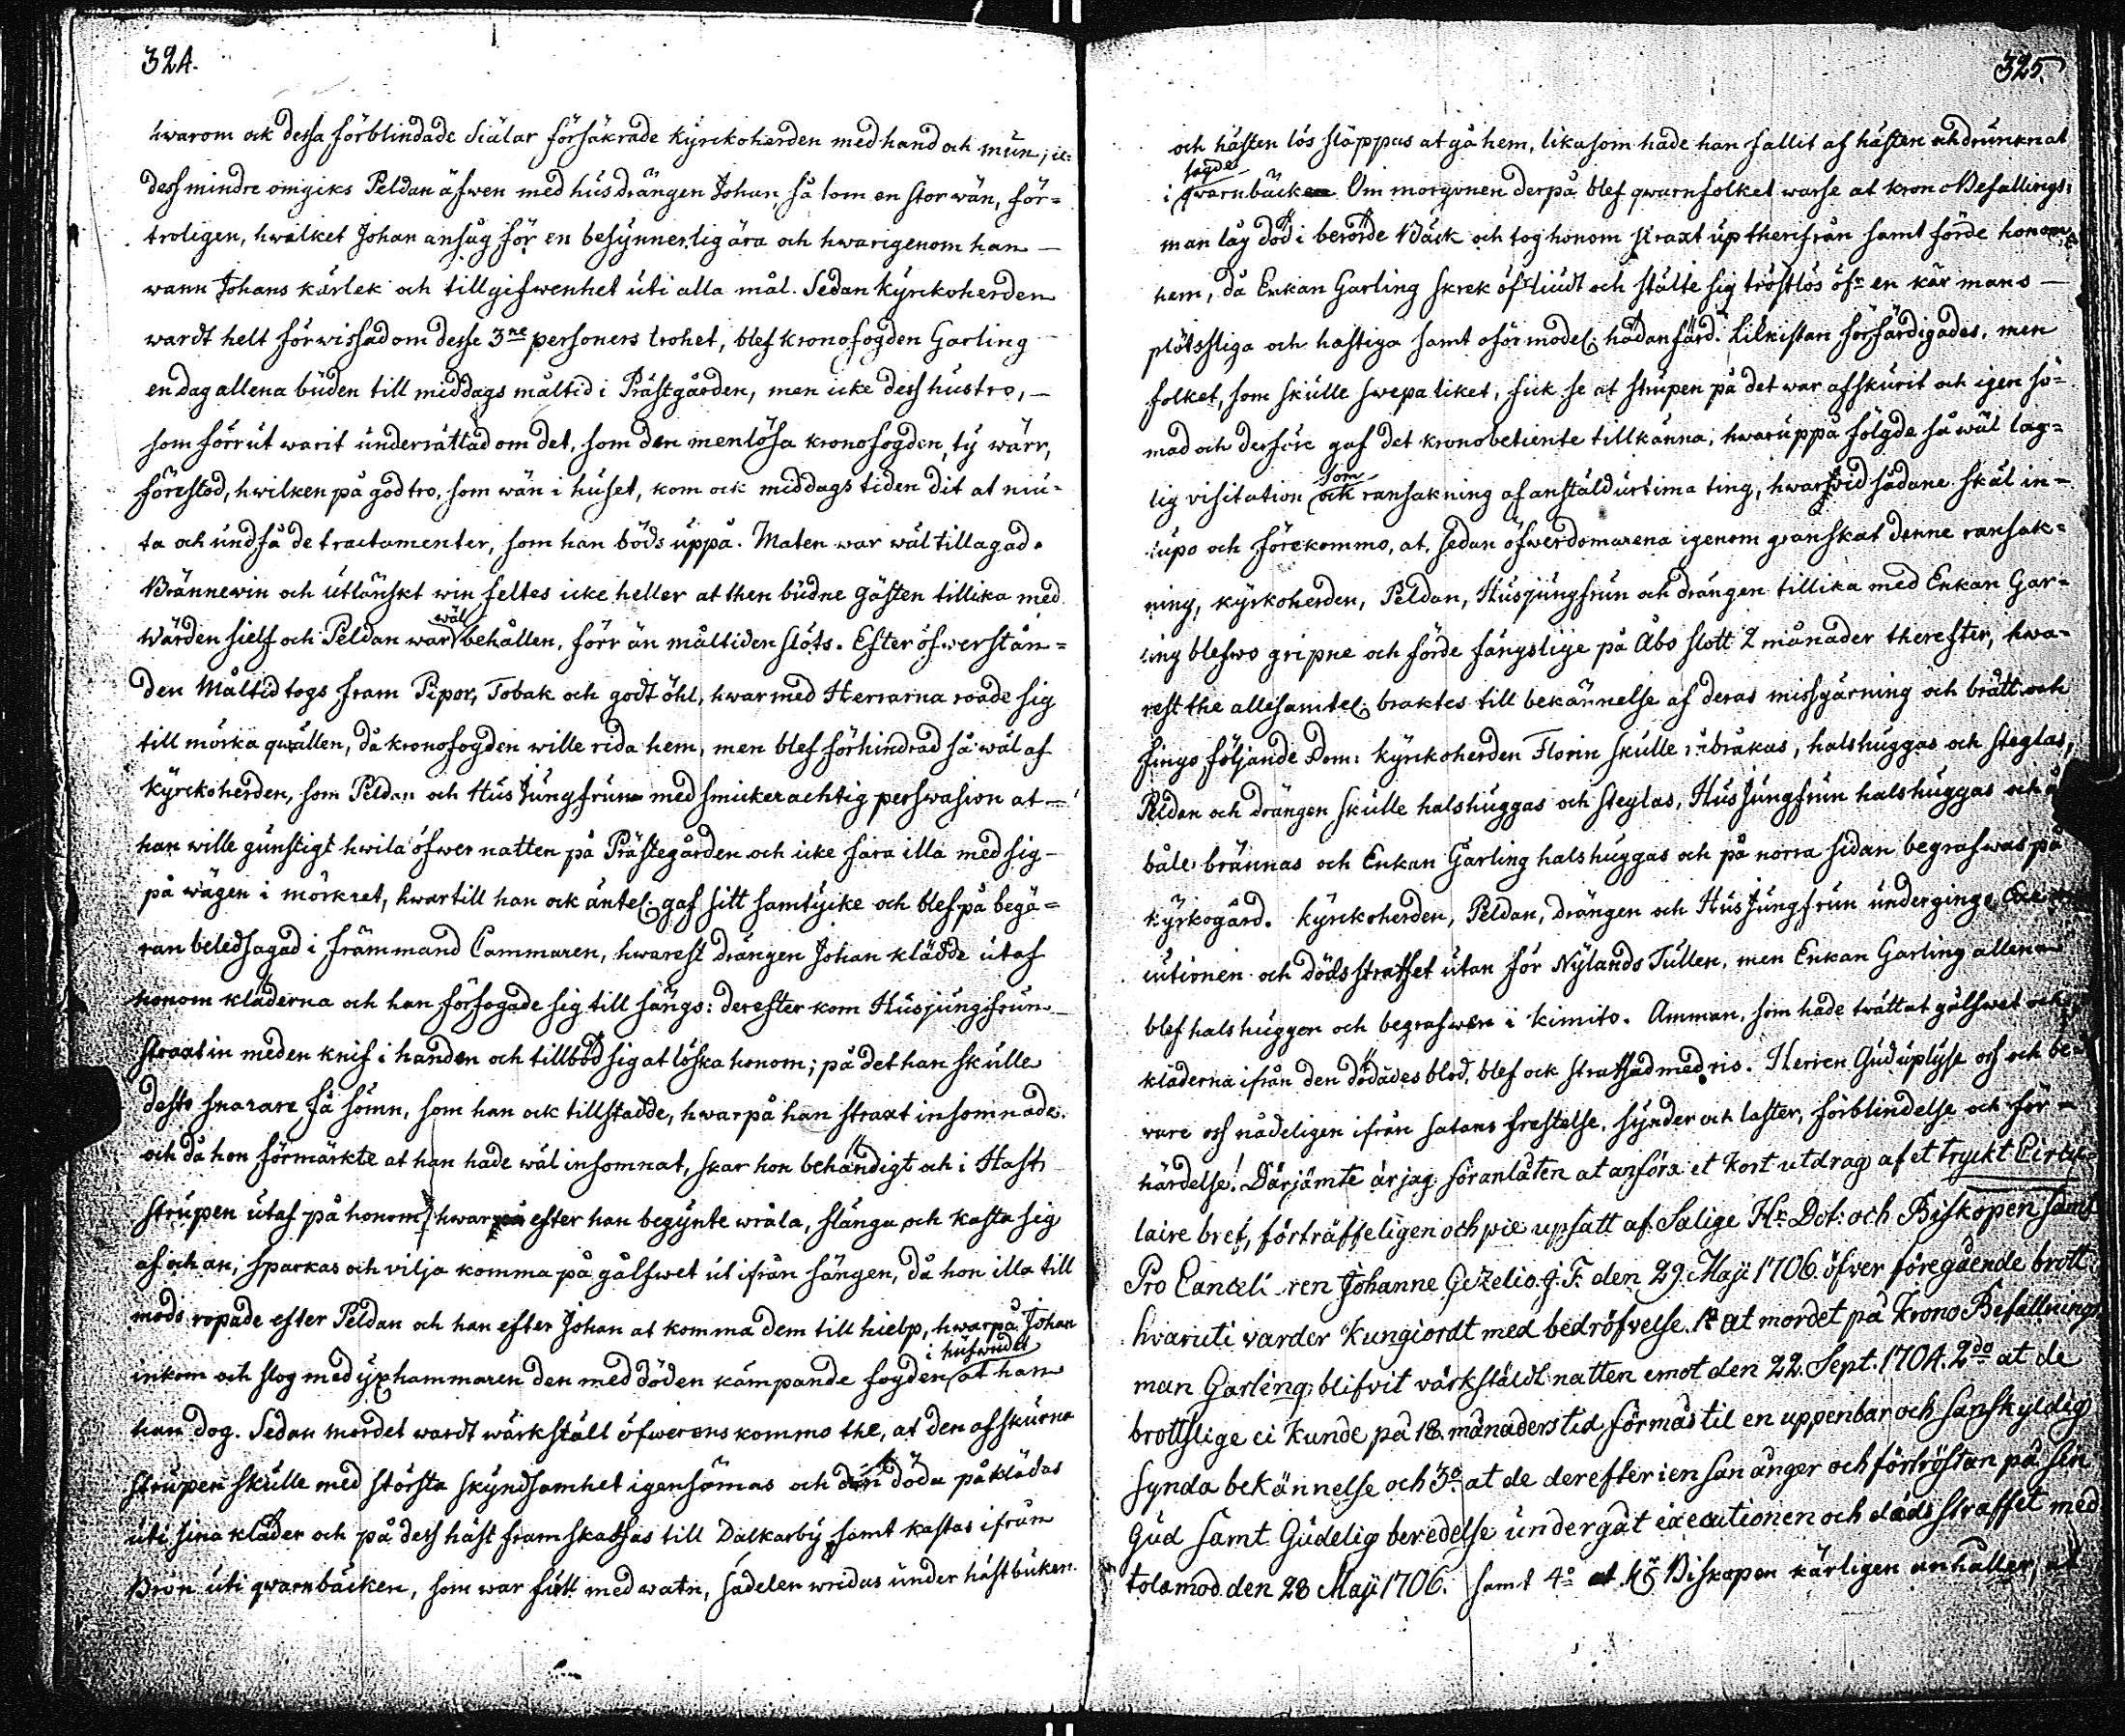 324.
hwarom ock dessa förblindade Siälar försäkrade Kyrckoherden med hand och mun; ic=
dess mindre omgiks Peldan äfwen med husdrängen Johan, så som en stor wän, för=
troligen, hwilket Johan ansåg för en besynnerlig ära och hwarigenom han —
wann Johans kärlek och tillgifwenhet uti alla mål. Sedan Kyrckoherden
wardt helt förwissad om desse 3ne personers trohet, blef kronofogden Garling
en dag allena buden till middags måltid i Prästgården, men icke dess hustro, —
som förrut warit underrättad om det, som den menlösa kronofogden, ty wärr,
förestod, hwilken på god tro, som wän i huset, kom ock middags tiden dit at niu=
ta och undfå de tractamenter, som han böds uppå. Maten war wäl tillagad.
Brännewin och utländskt win feltes icke heller at then budne gästen tillika med
Wärden sielf och Peldan war wäl behållen, förr än måltiden slöts. Efter öfwerstån=
den Måltid togs fram Pipor, Tobak och godt öhl, hwarmed Herrarna roade sig
till mörka qwällen, då kronofogden wille rida hem, men blef förhindrad så wäl af
Kyrckoherden, som Peldan och HusJungfrun med smickerachtig perswasion at —
han wille gunstigt hwila öfwer natten på Prästegården och icke fara illa med sig —
på wägen i mörkret, hwartill han ock äntel: gaf sitt samtycke och blef på begä=
ran beledsagad i främmand Cammaren, hwarest drängen Johan klädde utaf
honom kläderna och han förfogade sig till sängs: derefter kom Husjungfrun —
straxt in med en knif i handen och tillböd sig at löska honom; på det han skulle
desto snarare få sömn, som han ock tillstadde, hwarpå han straxt insomnade.
och då hon förmärkte at han hade wäl insomnat, skar hon behändigt och i Hast
strupen utaf på honom, hwar efter han begynte wråla, slänga och kasta sig
af och an, sparkas och vilja komma på gålfwet ut ifrån sängen, då hon illa till
mods ropade efter Peldan och han efter Johan at komma dem till hielp, hwarpå Johan
inkom och slog med yxhammaren den med döden kämpande fogden i hufwudet at han
han dog. Sedan mordet wardt wärkstält öfwerens kommo the, at den afskurna
strupen skulle med största skyndsamhet igensömas och den döda påklädas
uti sina kläder och på dess häst framskaffas till Dalkarby samt kastas ifrån
Bron uti qwarnbäcken, som war full med watn, sadelen wridas under hästbuken
325.
och hästen lös släppas at gå hem, likasom hade han fallit af hästen och drunknat
i sagde qwarnbäck Om morgonen derpå blef qwarnfolket warse at krono Befallings:
man låg död i berörde Bäck och tog honom straxt up therifrån samt förde honom
hem, då Enkan Garling skrek öfr liudt och stälte sig tröstlös öfr en kär mans —
plötsliga och hastiga samt oförmodel: hädanfärd. Likkistan förfärdigades, men
folket, som skulle swepa liket, fick se at strupen på det war afskurit och igen sö=
mad och derföre gaf det kronobetiente tillkänna, hwaruppå följde så wäl lag=
lig visitation som ransakning af anstäld urtima ting, hwarwid sådane skäl in=
lupo och förekommo, at, sedan öfwerdomarena igenom granskat denne ransak=
ning, kyrkoherden, Peldan, Husjungfrun och drängen tillika med Enkan Gar=
ling blefwo gripne och förde fängslige på Åbo slott 2 månader therefter, hwa=
rest the allesamtel: braktes till bekännelse af deras missgärning och brått och
fingo följande Dom: Kyrckoherden Florin skulle rådbråkas, halshuggas och steglas,
Peldan och drängen skulle halshuggas och steglas, HusJungfrun halshuggas och å
båle brännas och Enkan Garling halshuggas och på norra sidan begrafwas på
kyrkogård. Kyrckoherden, Peldan, drängen och HusJungfrun undergingo Exe
cutionen och dödsstraffet utan för Nylands Tullen, men Enkan Garling allena
blef halshuggen och begrafwen i Kimito. Amman, som hade twättat gålfwet och
kläderna ifrån den dödades blod, blef ock straffad med ris. Herren Gud uplyse oss och be=
ware oss nådeligen ifrån satans frestelse, synder och laster, förblindelse och för=
härdelse! Därjämte är jag föranlåten at anföra et kort utdrag af et tryckt Circu
laire bref, förträffeligen och pie upsatt af Salige Hr Dct: och Biskopen samt
Pro Canceli ren Johanne Gezelio. J. F. den 29. Maji 1706. öfver föregående brott
hvaruti varder kungiordt med bedröfvelse. 1o at mordet på Krono Befallnings
man Garling blifvit värkstäldt natten emot den 22. Sept. 1704. 2do at de
brottslige ei kunde på 18. månaders tid förmås til en uppenbar och sanskyldig
synda bekännelse och 3o at de derefter i en san ånger och förtröstan på sin
Gud samt Gudelig beredelse undergåt executionen och dödsstraffet med
tolamod den 28 Maji 1706. samt 4o at Hr Biskopen kärligen anhåller, at